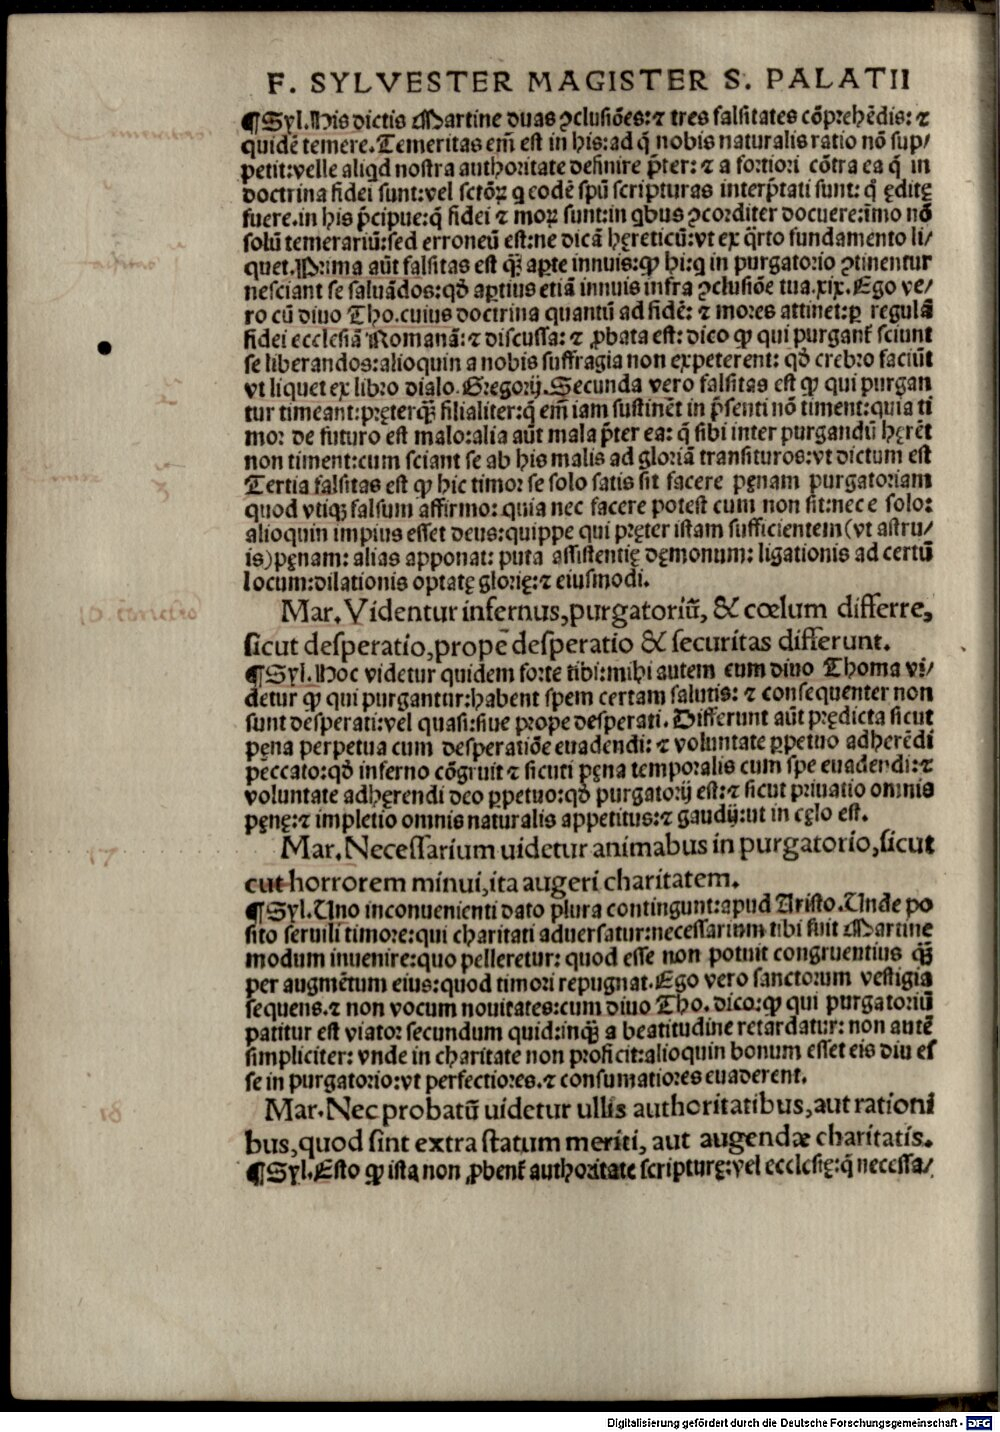 F. SYLVESTER MAGISTER S. PALATII
¶Syl. His dictis Martine duas ꝯclusiões: ⁊ tres falsitates cõprehẽdis: ⁊
quidẽ temere. Temeritas em̃ est in his: ad q̃ nobis naturalis ratio nõ sup/
petit: velle aliqd nostra authoritate definire p̃ter: ⁊ a fortiori cõtra ea q̃ in
doctrina fidei sunt: vel sctõꝝ q eodẽ spũ scripturas interp̃tati sunt: q̃ ęditę
fuere. in his p̃cipue: q̃ fidei ⁊ moꝝ sunt: in qbus ꝯcorditer docuere: ĩmo nõ
solũ temerariũ: sed erroneũ est: ne dicã hęreticũ: vt ex q̃rto fundamento li/
quet. Prima aũt falsitas est q̃ꝫ aꝑte innuis: ꝙ hi: q in purgatorio ꝯtinentur
nesciant se saluãdos: qð aꝑtius etiã innuis infra ꝯclusiõe tua. xix. Ego ve/
ro cũ diuo Tho. cuius doctrina quantũ ad fidẽ: ⁊ mores attinet: ꝑ regulã
fidei ecclesiã Romanã: ⁊ discussa: ⁊ ꝓbata est: dico ꝙ qui purgant̃ sciunt
se liberandos: alioquin a nobis suffragia non expeterent: qð crebro faciũt
vt liquet ex libro dialo. Gregorij. Secunda vero falsitas est ꝙ qui purgan
tur timeant: pręterq̃ꝫ filialiter: q̃ em̃ iam sustinẽt in p̃senti nõ timent: quia ti
mor de futuro est malo: alia aũt mala p̃ter ea: q̃ sibi inter purgandũ hęrẽt
non timent: cum sciant se ab his malis ad gloriã transituros: vt dictum est
Tertia falsitas est ꝙ hic timor se solo satis sit facere pęnam purgatoriam
quod vtiqꝫ falsum affirmo: quia nec facere potest cum non sit: nec e solo:
alioquin impius esset deus: quippe qui pręter istam sufficientem (vt astru/
is) pęnam: alias apponat: puta assistentię dęmonum: ligationis ad certũ
locum: dilationis optatę glorię: ⁊ eiusmodi.
10. cõnclusio
Mar. Videntur infernus, purgatoriũ, & cœlum differre,
sicut desperatio, propẽ desperatio & securitas differunt.
¶Syl. Hoc videtur quidem forte tibi: mihi autem cum diuo Thoma vi/
detur ꝙ qui purgantur: habent spem certam salutis: ⁊ consequenter non
sunt desperati: vel quasi: siue prope desperati. Differunt aũt prędicta sicut
pęna perpetua cum desperatiõe euadendi: ⁊ voluntate ꝑpetuo adherẽdi
peccato: qð inferno cõgruit ⁊ sicuti pęna temporalis cum spe euadendi: ⁊
voluntate adhęrendi deo ꝑpetuo: qð purgatorij est: ⁊ sicut priuatio omnis
pęnę: ⁊ impletio omnis naturalis appetitus: ⁊ gaudij: ut in cęlo est.
17
Mar. Necessarium uidetur animabus in purgatorio, sicut
cut horrorem minui, ita augeri charitatem.
¶Syl. Uno inconuenienti dato plura contingunt: apud Aristo. Unde po
sito seruili timore: qui charitati aduersatur: necessarium tibi fuit Martine
modum inuenire: quo pelleretur: quod esse non potuit congruentius q̃ꝫ
per augmẽtum eius: quod timori repugnat. Ego vero sanctorum vestigia
sequens. ⁊ non vocum nouitates: cum diuo Tho. dico: ꝙ qui purgatoriũ
patitur est viator secundum quid: inq̃ꝫ a beatitudine retardatur: non autẽ
simpliciter: vnde in charitate non proficit: alioquin bonum esset eis diu es
se in purgatorio: vt perfectiores. ⁊ consumatiores euaderent.
18
Mar. Nec probatũ uidetur ullis authoritatibus, aut rationi
bus, quod sint extra statum meriti, aut augendæ charitatis.
¶Syl. Esto ꝙ ista non ꝓbent̃ authoritate scripturę: vel ecclesię: q̃ necessa/
Digitalisierung gefördert durch die Deutsche Forschungsgemeinschaft - DFG